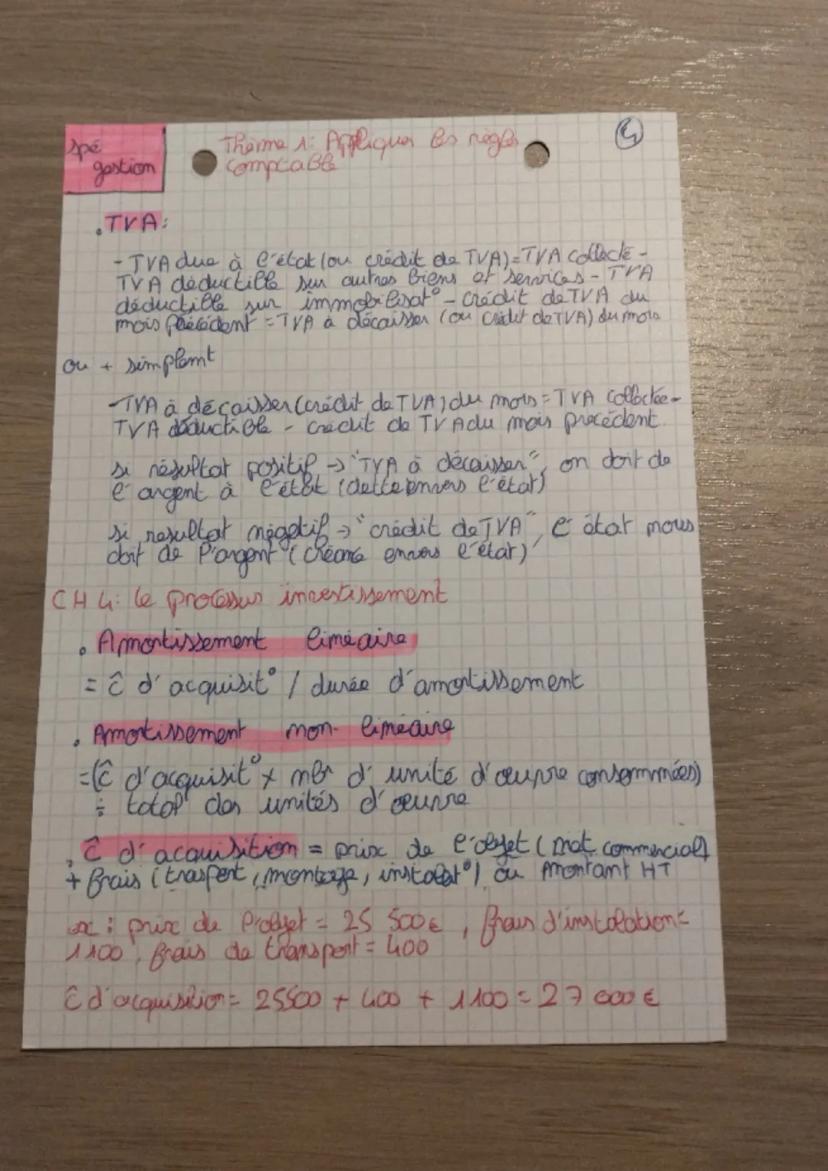 Spé
gestion
Thème 1: Appliquer les règles
comptable
4
. TVA:
- TVA due à l'état (ou crédit de TVA) = TVA collecté -
TVA déductible sur autres biens et services - TVA
déductible sur immobilisat° - crédit de TVA du
mois précédent = TVA à décaisser (ou crédit de TVA) du mois
ou + simplemt
- TVA à décaisser (crédit de TVA) du mois = TVA collectée -
TVA déductible - crédit de TVA du mois précédent.
si résultat positif → "TVA à décaisser", on doit de
l'argent à l'état (dette envers l'état)
si resultat négatif → "crédit de TVA", l'état nous
doit de l'argent (créance envers l'état)
CH 4: le processus investissement
. Amortissement linéaire
= ĉ d'acquisit° / durée d'amortissement
. Amortissement non linéaire
= (ĉ d'acquisit° x nbr d'unité d'œuvre consommées)
÷ total des unités d'œuvre
. ĉ d'acquisition = prix de l'objet (mat commercial)
+ frais (trasport, montage, instalat°) ou montant HT
ex: prix de l'objet = 25 500€, frais d'instalation =
1100, frais de transport = 400
ĉ d'acquisition = 25500 + 400 + 1100 = 27 000€